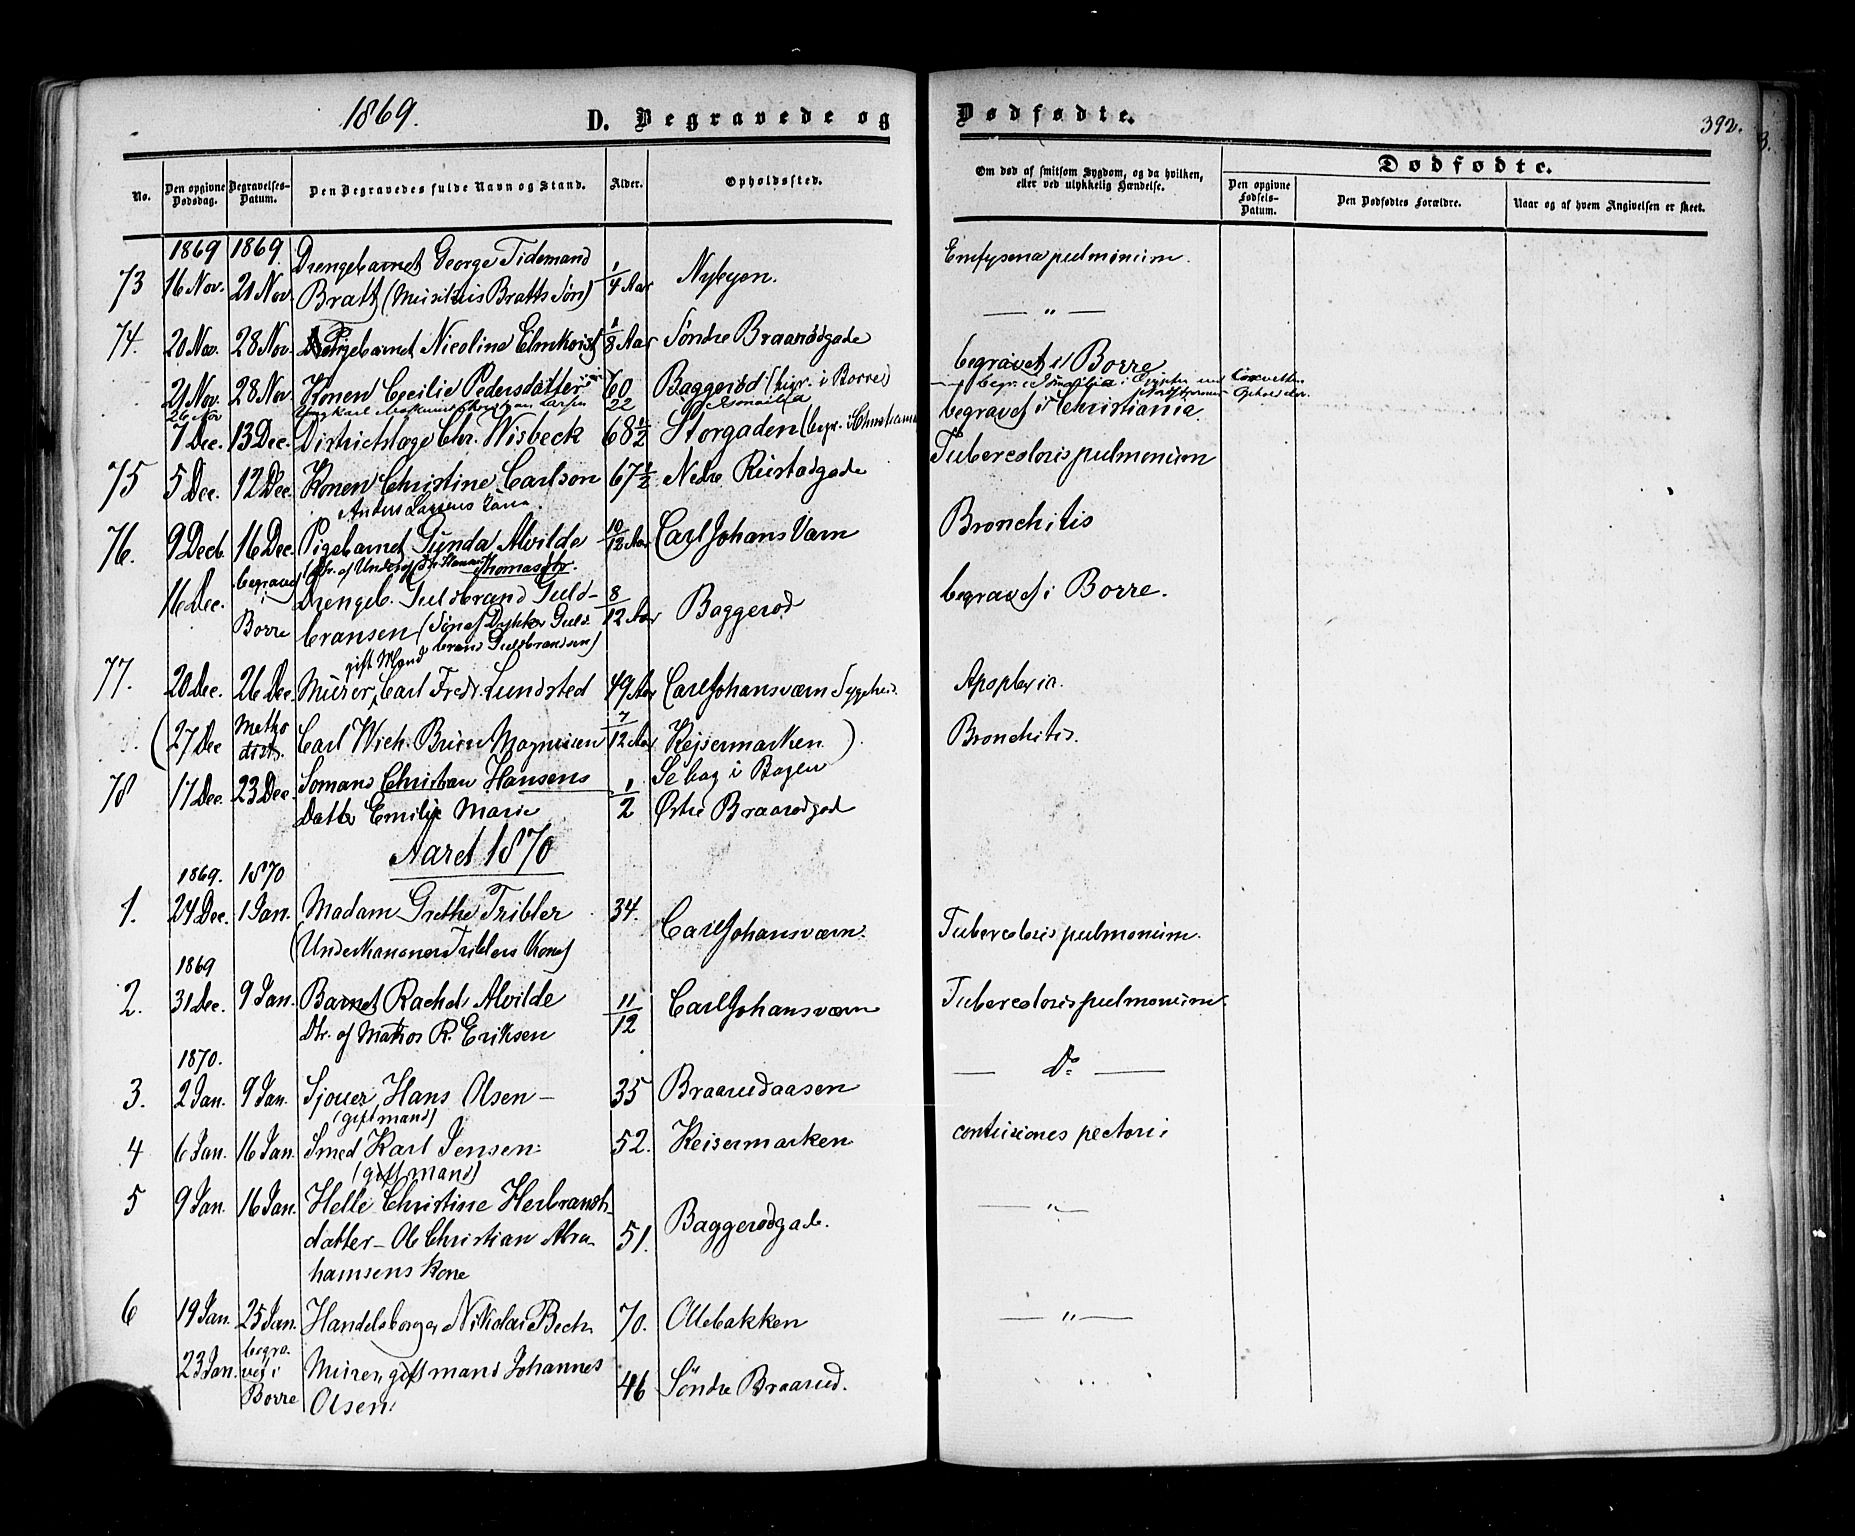 1869.
D. Begravede og
Dødfødte.
392.
No.
Den opgivne Dødsdag.
Begravelses-Datum.
Den Begravedes fulde Navn og Stand.
Alder.
Opholdssted.
Om død af smitsom Sygdom, og da hvilken, eller ved ulykkelig Hændelse.
Dødfødte.
Den opgivne Fødsels-Datum.
Den Dødfødtes Forældre.
Naar og af hvem Angivelsen er skeet.
1869 1869
Drengebarnet George Tidemand
73 16 Nov. 21 Nov. Bratt (Musikus Bratts Søn) 1/4 Aar Nybyen. Emfysema pulmonum.
74. 20 Nov. 28 Nov. Pigebarnet Nicoline Elmkvist 1/8 Aar Søndre Braarødgade — " —
21 Nov. 28 Nov. Konen Cecilie Pedersdatter 60 Baggerød (begr. i Borre) begravet i Borre
26 Nov. 22 Ismailia
7 Dec. 13 Dec. Districtslæge Chr. Wisbeck 68 1/2 Storgaden (begr. i Christiania begravet i Christiania
75 5 Dec. 12 Dec. Konen Christine Carlson 67 1/2 Nedre Rustadgade Tubercolosis pulmonum
Anders Larsens Kone
76. 9 Decb. 16 Dec. Pigebarnet Gunda Alvilde 10/12 Aar Carl Johans Værn Bronchitis
Thomasdtr.
16 Dec. begravet i Borre Drengeb. Guldbrand Guldbransen (Søn af Dykker Guldbrand Guldbrandsen) 8/12 Aar Baggerød begravet i Borre.
gift Mand
77. 20 Dec. 26 Dec. Murer, Carl Fredr. Lundsted 49 Aar Carl Johansværn Sygehus. Apoplexia.
(27 Dec Methodists. Carl Wilh. Bruun Magnusen 7/12 Aar Keisermarken). Bronchitis.
Se bag i Bogen
78 17 Dec. 23 Dec. Sømand Christian Hansens
Datter Emilie Marie 1/2 Østre Braarødgad
Aaret 1870
1869. 1870
1. 24 Dec. 1 Jan. Madam Grethe Tribler 34. Carl Johansværn. Tubercolosis pulmonum.
(Underkanoner Triblers Kone)
1869
2. 31 Dec. 9 Jan. Barnet Rachel Alvilde 11/12 Carl Johansværn Tubercolosis pulmonum.
Dtr. af Matros R. Eriksen
1870.
3. 2 Jan. 9 Jan. Sjouer, Hans Olsen — 35 Braarudaasen — Do —
(gift mand)
4 6 Jan. 16 Jan. Smed Karl Jensen 52. Keisermarken contusiones pectoris
(gift mand)
5 9 Jan. 16 Jan. Helle Christine Herbrands-
datter – Ole Christian Abra- 51. Baggerødgade. — " —
hamsens Kone
6 19 Jan. 25 Jan. Handelsborger Nikolai Bech 70. Ollebakken — " —
23 Jan. begravet i Borre Murer, gift mand Johannes
Olsen. 46 Søndre Braarud.